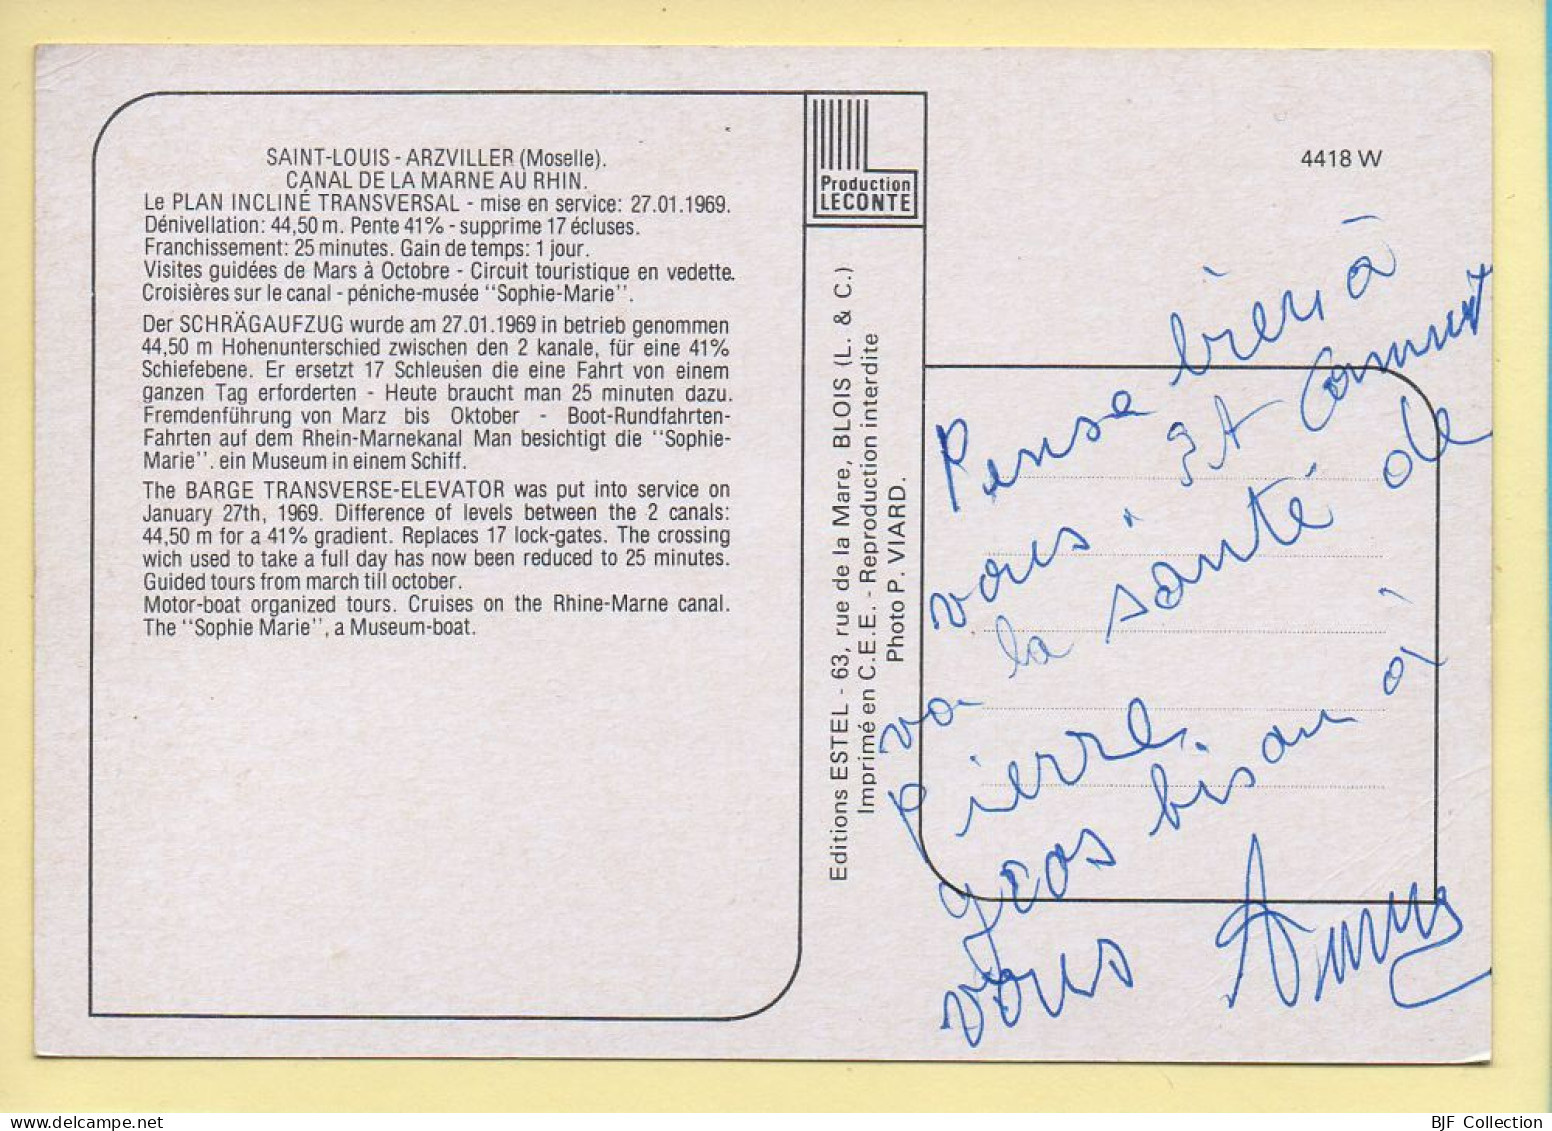 SAINT-LOUIS - ARZVILLER (Moselle).
CANAL DE LA MARNE AU RHIN.
Le PLAN INCLINÉ TRANSVERSAL - mise en service: 27.01.1969.
Dénivellation: 44,50 m. Pente 41% - supprime 17 écluses.
Franchissement: 25 minutes. Gain de temps: 1 jour.
Visites guidées de Mars à Octobre - Circuit touristique en vedette.
Croisières sur le canal - péniche-musée "Sophie-Marie".
Der SCHRÄGAUFZUG wurde am 27.01.1969 in betrieb genommen
44,50 m Hohenunterschied zwischen den 2 kanale, für eine 41%
Schiefebene. Er ersetzt 17 Schleusen die eine Fahrt von einem
ganzen Tag erforderten - Heute braucht man 25 minuten dazu.
Fremdenführung von Marz bis Oktober - Boot-Rundfahrten-
Fahrten auf dem Rhein-Marnekanal Man besichtigt die "Sophie-
Marie". ein Museum in einem Schiff.
The BARGE TRANSVERSE-ELEVATOR was put into service on
January 27th, 1969. Difference of levels between the 2 canals:
44,50 m for a 41% gradient. Replaces 17 lock-gates. The crossing
wich used to take a full day has now been reduced to 25 minutes.
Guided tours from march till october.
Motor-boat organized tours. Cruises on the Rhine-Marne canal.
The "Sophie Marie", a Museum-boat.
Production
LECONTE
Editions ESTEL - 63, rue de la Mare, BLOIS (L. & C.)
Imprimé en C.E.E. - Reproduction interdite
Photo P. VIARD.
4418 W
Pense bien à
vous. Et comment
va la santé de
Pierre.
gros bisou à
vous
BJF Collection